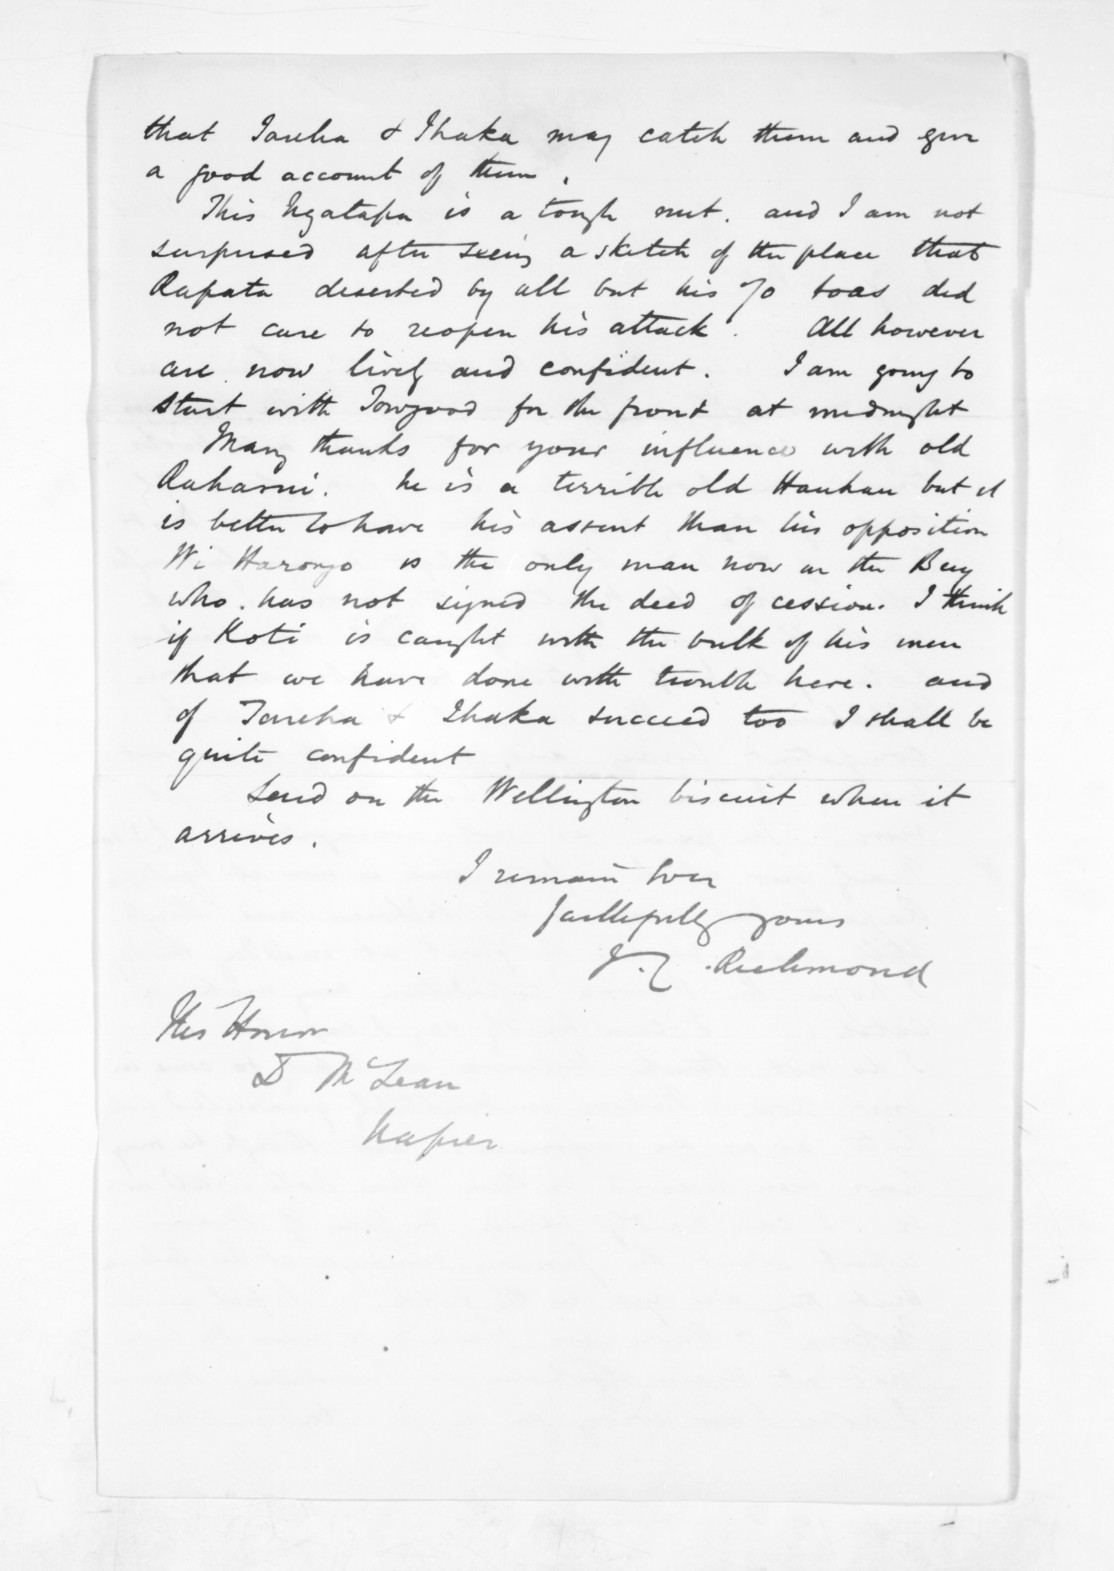 that Tareha & Ihaka may catch them and give
a good account of them.
This Ngatapa is a tough nut. and I am not
surprised after seeing a sketch of the place that
Rapata deserted by all but his 70 toas did
not care to reopen his attack. All however
are now lively and confident. I am going to
start with Towgood for the front at midnight
Many thanks for your influence with old
Raharui. he is a terrible old Hauhau but it
is better to have his assent than his opposition
Wi Haronga is the only man now in the Bay
who has not signed the deed of cession. I think
if Koti is caught with the bulk of his men
that we have done with trouble here. and
if Tareha & Ihaka succeed too I shall be
quite confident
Send on the Wellington biscuit when it
arrives.
I remain Ever
faithfully yours
J.C. Richmond
His Honor
D McLean
Napier